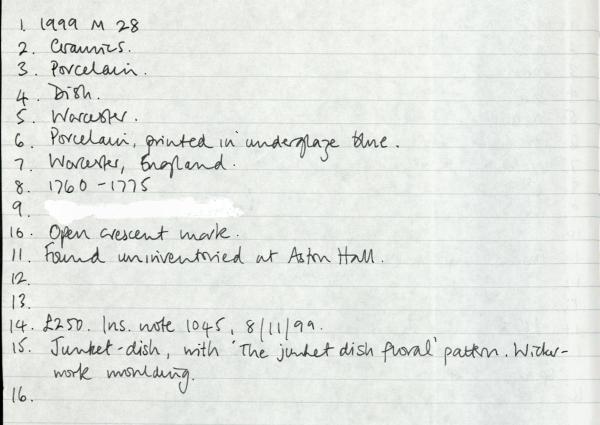 1. 1999 M 28
2. Ceramics.
3. Porcelain.
4. Dish.
5. Worcester.
6. Porcelain, printed in underglaze blue.
7. Worcester, England.
8. 1760 - 1775
9.
10. Open crescent mark.
11. Found uninventoried at Aston Hall.
12.
13.
14. £250. Ins. note 1045, 8/11/99.
15. Junket-dish, with 'The junket dish floral' pattern. Wicker-
work moulding.
16.